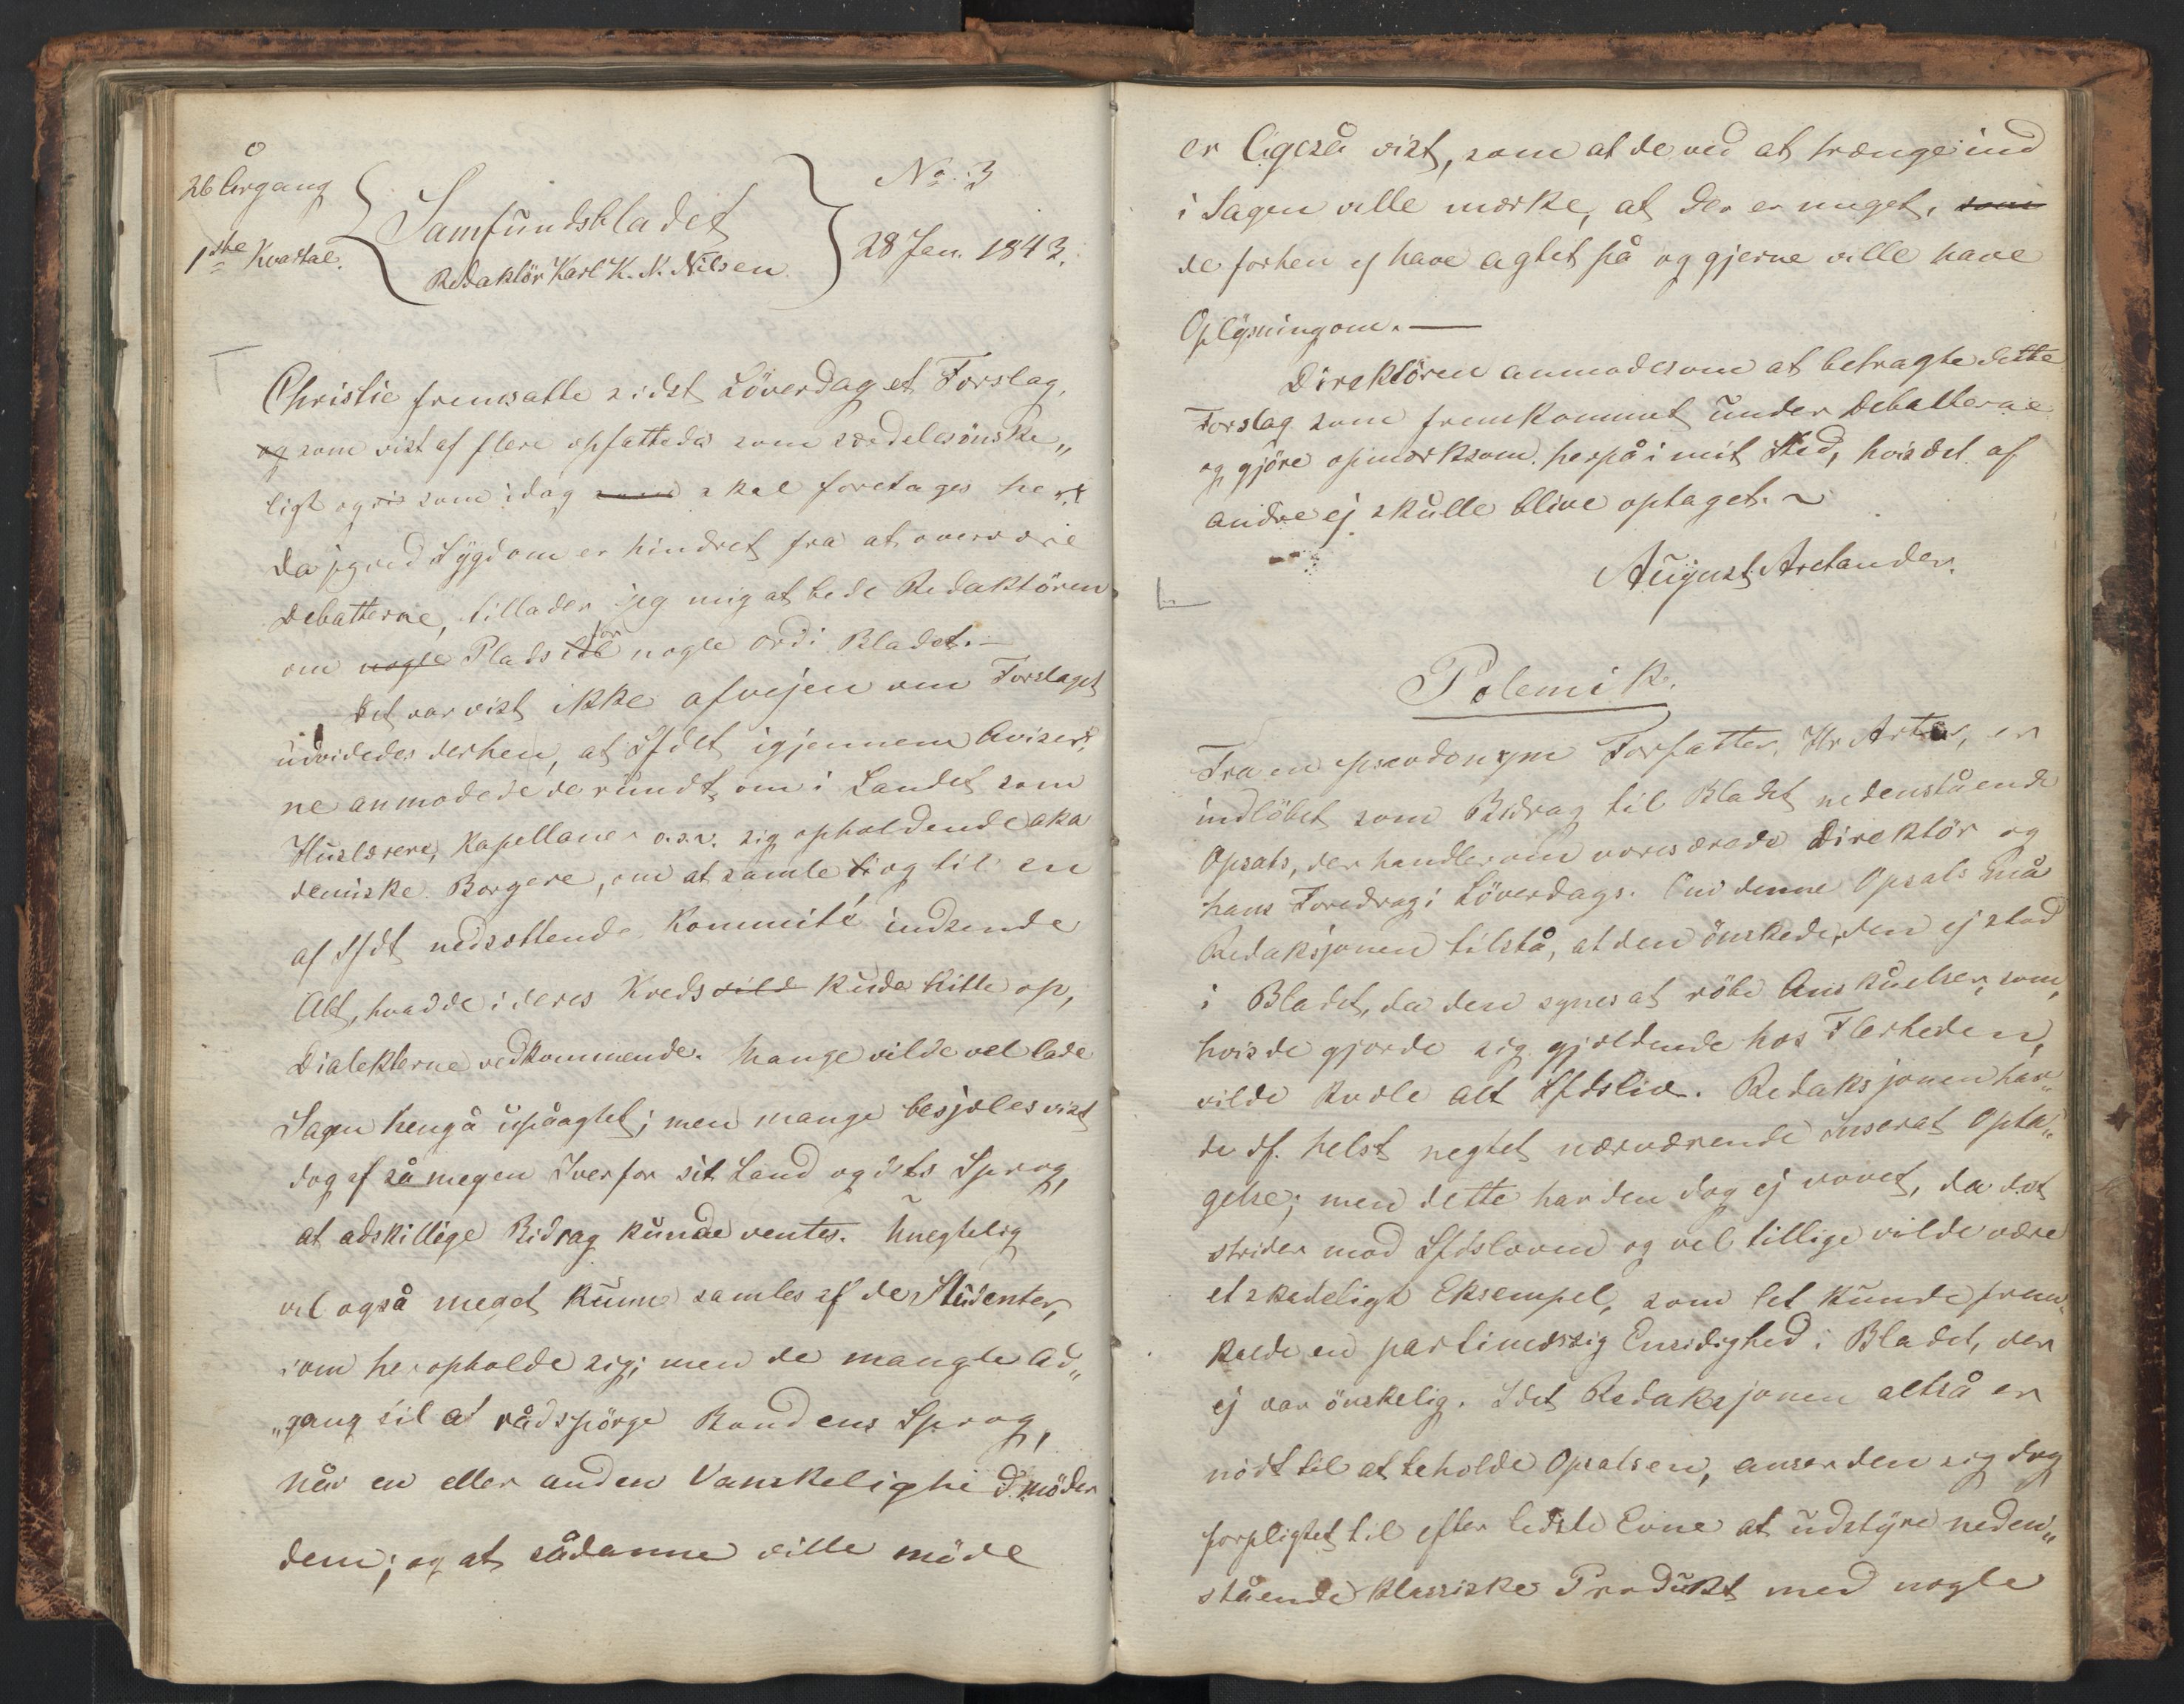 26 Årgang
1ste Kvartal.
Samfundsbladet
Redaktör Karl K. N. Nilsen.
No. 3
28 Jan. 1843.
Christie fremsatte sidst Löverdag et Forslag,
og som vist af flere opfattedes som særdeles önske„
ligt og som idag skal foretages her.
Da jeg ved Sygdom er hindret fra at overvære
Debatterne, tillader jeg mig at bede Redaktören
om nogle Plads til for nogle ord i Bladet.—
Det var vist ikke afvejen om Forslaget
udvidedes derhen, at Sfdet igjennem Aviser„
ne anmodede de rundt om i Landet som
Huslærere, Kapellaner o.s.v. sig opholdende aka
demiske Borgere, om at samle og til en
af Sfdt nedsættende Kommité indsende
Alt, hvad de i deres Kreds vild kude hitte op,
Dialekterne vedkommende. Mange vilde vel lade
Sagen hengå upåagtet; men mange besjæles vist
dog af så megen Iver for sit Land og dets Sprog,
at adskillige Bidrag kunde ventes. Unegtelig
vil også meget kunne samles af de Studenter,
som her opholde sig; men de mangle Ad„
„gang til at rådspörge Bondens Sprog,
når en eller anden Vanskelighed möder
dem; og at sådanne ville möde
er ligeså vist, som at de ved at trænge ind
i Sagen ville mærke, at der er meget, som
de forhen ej have agtet på og gjerne ville have
Oplysning om.—
Direktören anmodes om at betragte dette
Forslag som fremkommet under Debatterne
og gjöre opmærksom herpå i mit Sted, hvis det af
andre ej skulle blive optaget.~
August Arctander.
Polemik.
Fra en pseudonym Forfatter, Hr Artur, er
indlöbet som Bidrag til Bladet nedenstående
Opsats, der handler om vores ærede Direktör og
hans Foredrag i Löverdags. Om denne Opsats må
Redaksjonen tilstå, at den önskede, den ej stod
i Bladet, da den synes at röbe Anskuelser, som,
hvis de gjorde sig gjældende hos Flerheden,
vilde kvæle alt Sfdsliv. Redaksjonen hav„
de df. helst negtet nærværende Inserat Opta„
gelse; men dette har den dog ej vovet, da det
strider mod Sfdsloven og vel tillige vilde være
et skadeligt Eksempel, som let kunde frem„
kalde en partimæssig Ensidighed i Bladet, der
ej var önskelig. Idet Redaksjonen altså er
nödt til at beholde Opsatsen, anser den sig dog
forpligtet til efter bedste Evne at udstyre neden„
stående klassiske Produkt med nogle